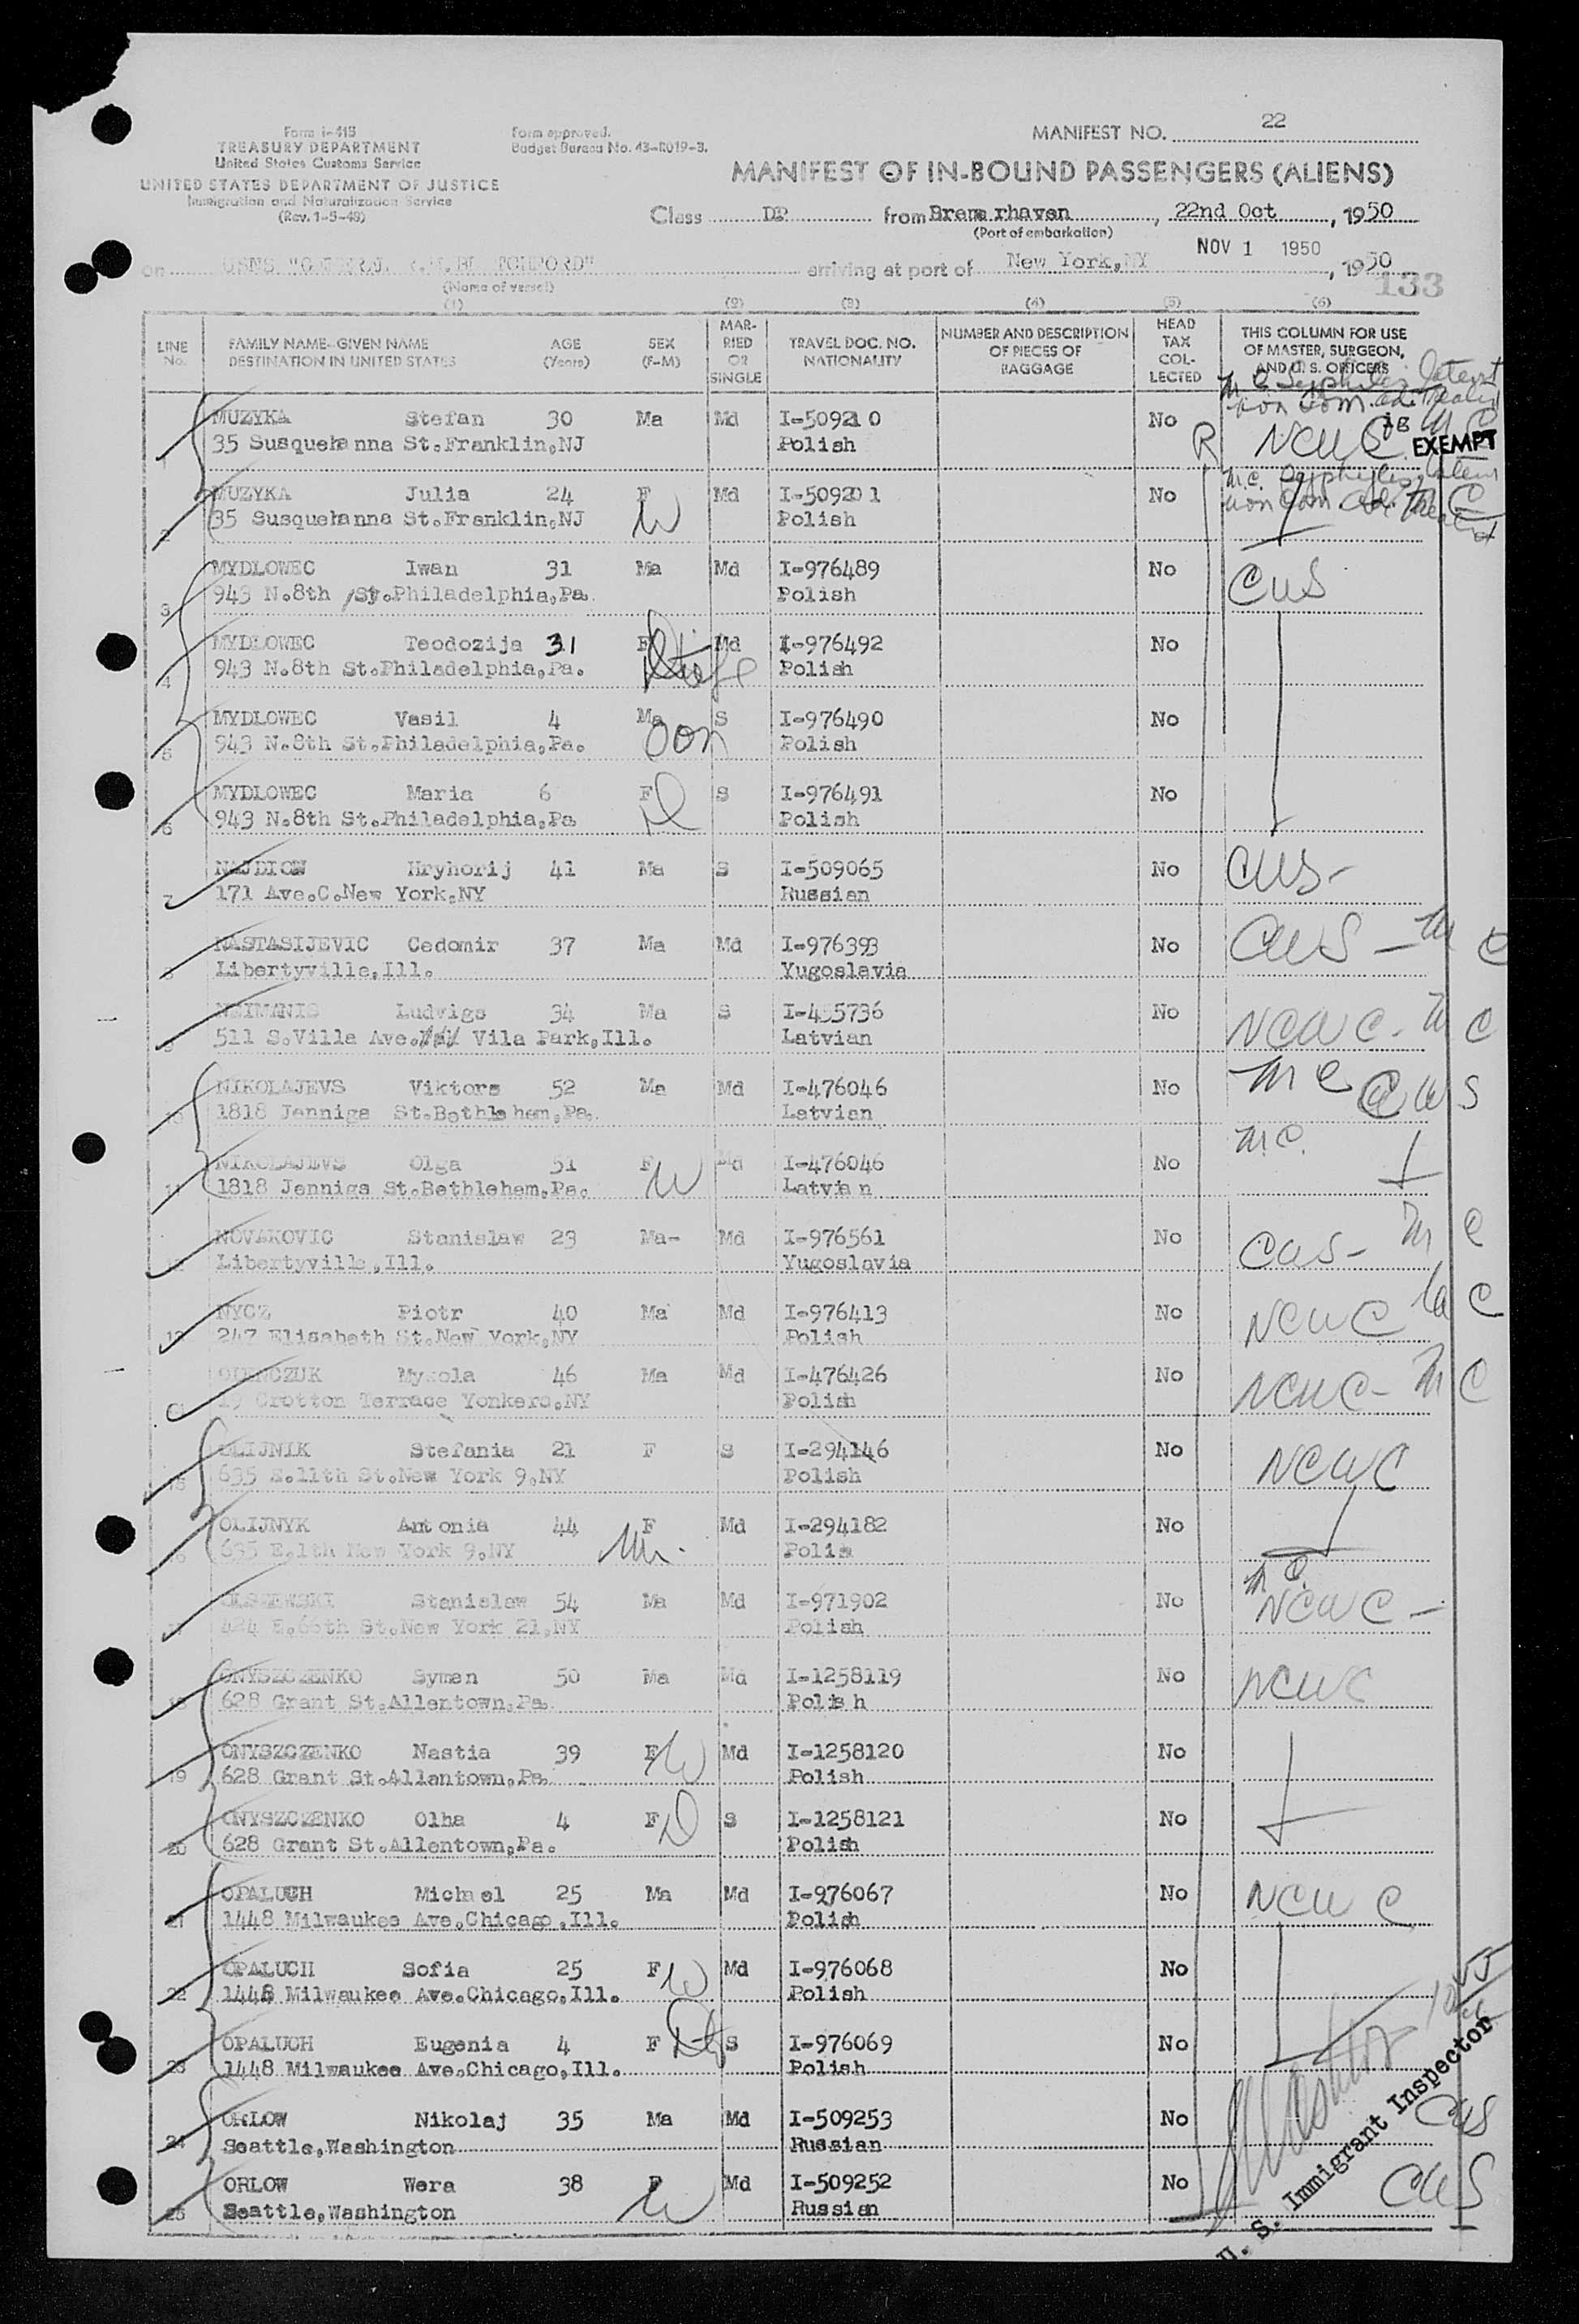 Form I-415
TREASURY DEPARTMENT
United States Customs Service
UNITED STATES DEPARTMENT OF JUSTICE
Immigration and Naturalization Service
(Rev. 1-5-49)
Form approved.
Budget Bureau No. 43-R019-3.
MANIFEST NO. 22
MANIFEST OF IN-BOUND PASSENGERS (ALIENS)
Class DP from Breme rhaven, 22nd Oct, 1950
(Port of embarkation)
on USNS arriving at port of New York,NY NOV 1 1950, 1950
(Name of vessel)
133
(1) (2) (3) (4) (5) (6)
LINE No. FAMILY NAME-GIVEN NAME DESTINATION IN UNITED STATES AGE (Years) SEX (F-M) MARRIED OR SINGLE TRAVEL DOC. NO. NATIONALITY NUMBER AND DESCRIPTION OF PIECES OF BAGGAGE HEAD TAX COLLECTED THIS COLUMN FOR USE OF MASTER, SURGEON, AND U. S. OFFICERS
1 MUZYKA Stefan 30 Ma Md I-509210 No
35 Susqueha nna St.Franklin,NJ Polish R NCWC EXEMPT
2 MUZYKA Julia 24 F Md I-509201 No
35 Susquehanna St.Franklin,NJ W Polish
3 MYDLOWEC Iwan 31 Ma Md I-976489 No CWS
943 N.8th St.Philadelphia,Pa. Polish
4 MYDLOWEC Teodozija 31 F Md I-976492 No
943 N.8th St.Philadelphia,Pa. Polish
5 MYDLOWEC Vasil 4 Ma S I-976490 No
943 N.8th St.Philadelphia,Pa. son Polish
6 MYDLOWEC Maria 6 F S I-976491 No
943 N.8th St.Philadelphia,Pa D Polish
7 Hryhorij 41 Ma S I-509065 No CWS-
171 Ave.C.New York,NY Russian
8 NASTASIJEVIC Cedomir 37 Ma Md I-976393 No CWS - M C
Libertyville,Ill. Yugoslavia
9 NEIMANIS Ludvigs 34 Ma S I-455736 No
511 S.Villa Ave. Vila Park,Ill. Latvian NCWC - M C
10 NIKOLAJEVS Viktors 52 Ma Md I-476046 No M C CWS
1818 Jennigs St.Bethle hem,Pa. Latvian
11 NIKOLAJEVS Olga 51 F Md I-476046 No M.C.
1818 Jennigs St.Bethlehem,Pa. W Latvia n
12 NOVAKOVIC Stanislaw 23 Ma- Md I-976561 No CWS- M C
Libertyville,Ill. Yugoslavia
13 NYCZ Piotr 40 Ma Md I-976413 No NCWC M C
247 Elisabeth St.New York,NY Polish
14 Mykola 46 Ma Md I-476426 No NCWC- M C
19 Crotton Terrace Yonkers,NY Polish
15 OLIJNIK Stefania 21 F S I-294146 No NCWC
635 E.11th St.New York 9,NY Polish
16 OLIJNYK Antonia 44 F Md I-294182 No
635 E.1th New York 9,NY M. Polis
17 OLSZEWSKI Stanislaw 54 Ma Md I-971902 No M C. NCWC -
424 E.66th St.New York 21,NY Polish
18 ONYSZCZENKO Symen 50 Ma Md I-1258119 No NCWC
628 Grant St.Allentown,Pa. Polis h
19 ONYSZCZENKO Nastia 39 F W Md I-1258120 No
628 Grant St.Allentown,Pa. Polish
20 ONYSZCZENKO Olha 4 F D S I-1258121 No
628 Grant St.Allentown,Pa. Polish
21 OPALUCH Michael 25 Ma Md I-976067 No NCWC
1448 Milwaukee Ave.Chicago,Ill. Polish
22 OPALUCH Sofia 25 F W Md I-976068 No
1448 Milwaukee Ave.Chicago,Ill. Polish
23 OPALUCH Eugenia 4 F S I-976069 No
1448 Milwaukee Ave.Chicago,Ill. Polish
24 ORLOW Nikolaj 35 Ma Md I-509253 No CWS
Seattle,Washington Russian
25 ORLOW Wera 38 F Md I-509252 No CWS
Seattle,Washington W Russian
U. S. Immigrant Inspector